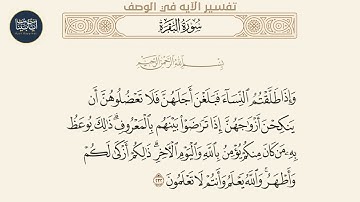 تفسير الآيه في الوصف
سُورَةُ البَقَرَةِ
بِسْمِ اللَّهِ الرَّحْمَٰنِ الرَّحِيمِ
وَإِذَا طَلَّقْتُمُ النِّسَاءَ فَبَلَغْنَ أَجَلَهُنَّ فَلَا تَعْضُلُوهُنَّ أَن
يَنكِحْنَ أَزْوَاجَهُنَّ إِذَا تَرَاضَوْا بَيْنَهُم بِالْمَعْرُوفِ ۗ ذَٰلِكَ يُوعَظُ
بِهِ مَن كَانَ مِنكُمْ يُؤْمِنُ بِاللَّهِ وَالْيَوْمِ الْآخِرِ ۗ ذَٰلِكُمْ أَزْكَىٰ لَكُمْ
وَأَطْهَرُ ۗ وَاللَّهُ يَعْلَمُ وَأَنتُمْ لَا تَعْلَمُونَ ٢٣٢